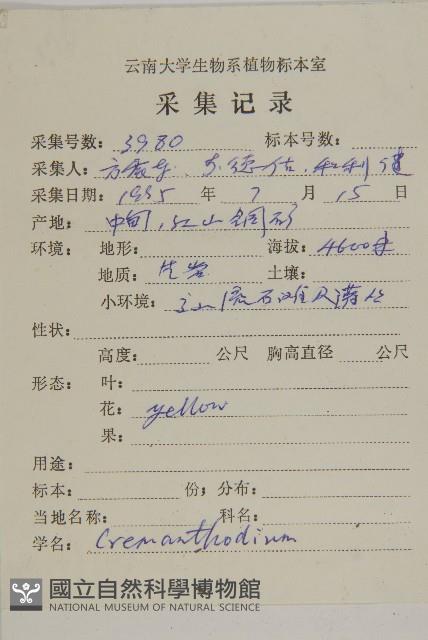 云南大学生物系植物标本室
采集记录
采集号数: 3980 标本号数:
采集人: 方震东
采集日期: 1995 年 7 月 15 日
产地: 中甸, 红山铜矿
环境: 地形: 海拔: 4600米
地质: 土壤:
小环境: 流石滩及
性状:
高度: 公尺 胸高直径 公尺
形态: 叶:
花: yellow
果:
用途:
标本: 份; 分布:
当地名称: 科名:
学名: Cremanthodium
國立自然科學博物館
NATIONAL MUSEUM OF NATURAL SCIENCE